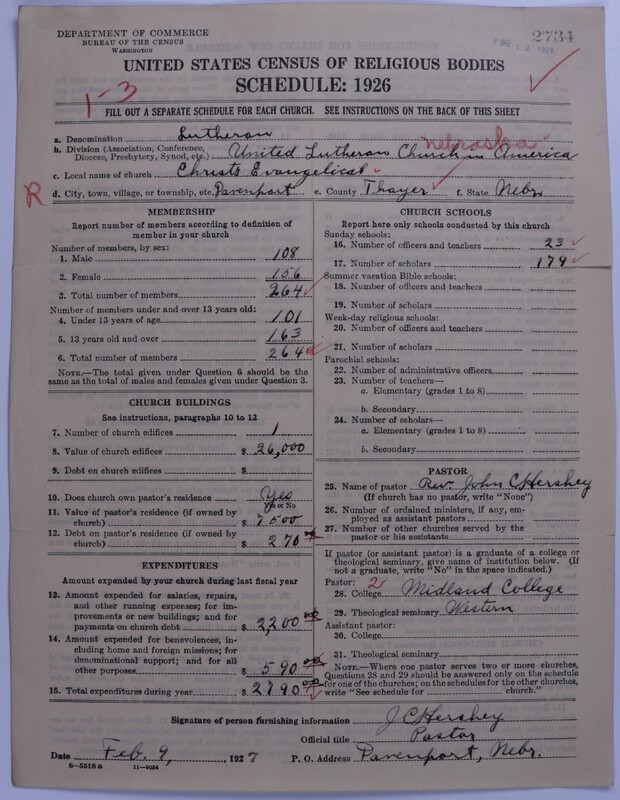 DEPARTMENT OF COMMERCE
BUREAU OF THE CENSUS
WASHINGTON
2734
UNITED STATES CENSUS OF RELIGIOUS BODIES
SCHEDULE: 1926
1-3
FILL OUT A SEPARATE SCHEDULE FOR EACH CHURCH. SEE INSTRUCTIONS ON THE BACK OF THIS SHEET
a. Denomination Lutheran
Nebraska
b. Division (Association, Conference, Diocese, Presbytery, Synod, etc.) United Lutheran Church in America
c. Local name of church Christs Evangelical
R
d. City, town, village, or township, etc. Davenport e. County Thayer f. State Nebr.
MEMBERSHIP
Report number of members according to definition of
member in your church
Number of members, by sex:
1. Male 108
2. Female 156
3. Total number of members 264
Number of members under and over 13 years old:
4. Under 13 years of age 101
5. 13 years old and over 163
6. Total number of members 264
NOTE.—The total given under Question 6 should be
same as the total of males and females given under Question 3.
CHURCH BUILDINGS
See instructions, paragraphs 10 to 12
7. Number of church edifices 1
8. Value of church edifices $ 26,000
9. Debt on church edifices $
10. Does church own pastor's residence Yes
Yes or No
11. Value of pastor's residence (if owned by
church) $ 7500
12. Debt on pastor's residence (if owned by
church) $ 270
EXPENDITURES
Amount expended by your church during last fiscal year
13. Amount expended for salaries, repairs,
and other running expenses; for im-
provements or new buildings; and for
payments on church debt $ 2200
14. Amount expended for benevolences, in-
cluding home and foreign missions; for
denominational support; and for all
other purposes $ 590
15. Total expenditures during year $ 2790
CHURCH SCHOOLS
Report here only schools conducted by this church
Sunday schools:
16. Number of officers and teachers 23
17. Number of scholars 179
Summer vacation Bible schools:
18. Number of officers and teachers
19. Number of scholars
Week-day religious schools:
20. Number of officers and teachers
21. Number of scholars
Parochial schools:
22. Number of administrative officers
23. Number of teachers—
a. Elementary (grades 1 to 8)
b. Secondary
24. Number of scholars—
a. Elementary (grades 1 to 8)
b. Secondary
PASTOR
25. Name of pastor Rev. John C Hershey
(If church has no pastor, write "None")
26. Number of ordained ministers, if any, em-
ployed as assistant pastors
27. Number of other churches served by the
pastor or his assistants
If pastor (or assistant pastor) is a graduate of a college or
theological seminary, give name of institution below. (If
not a graduate, write "No" in the space indicated.)
Pastor: 2
28. College Midland College
29. Theological seminary Western
Assistant pastor:
30. College
31. Theological seminary
NOTE.—Where one pastor serves two or more churches,
Questions 28 and 29 should be answered only on the schedule
for one of the churches; on the schedules for the other churches,
write "See schedule for church."
Signature of person furnishing information J C Hershey
Official title Pastor
Date Feb. 9, 1927 P. O. Address Davenport, Nebr.
8-5518 a 11-9034